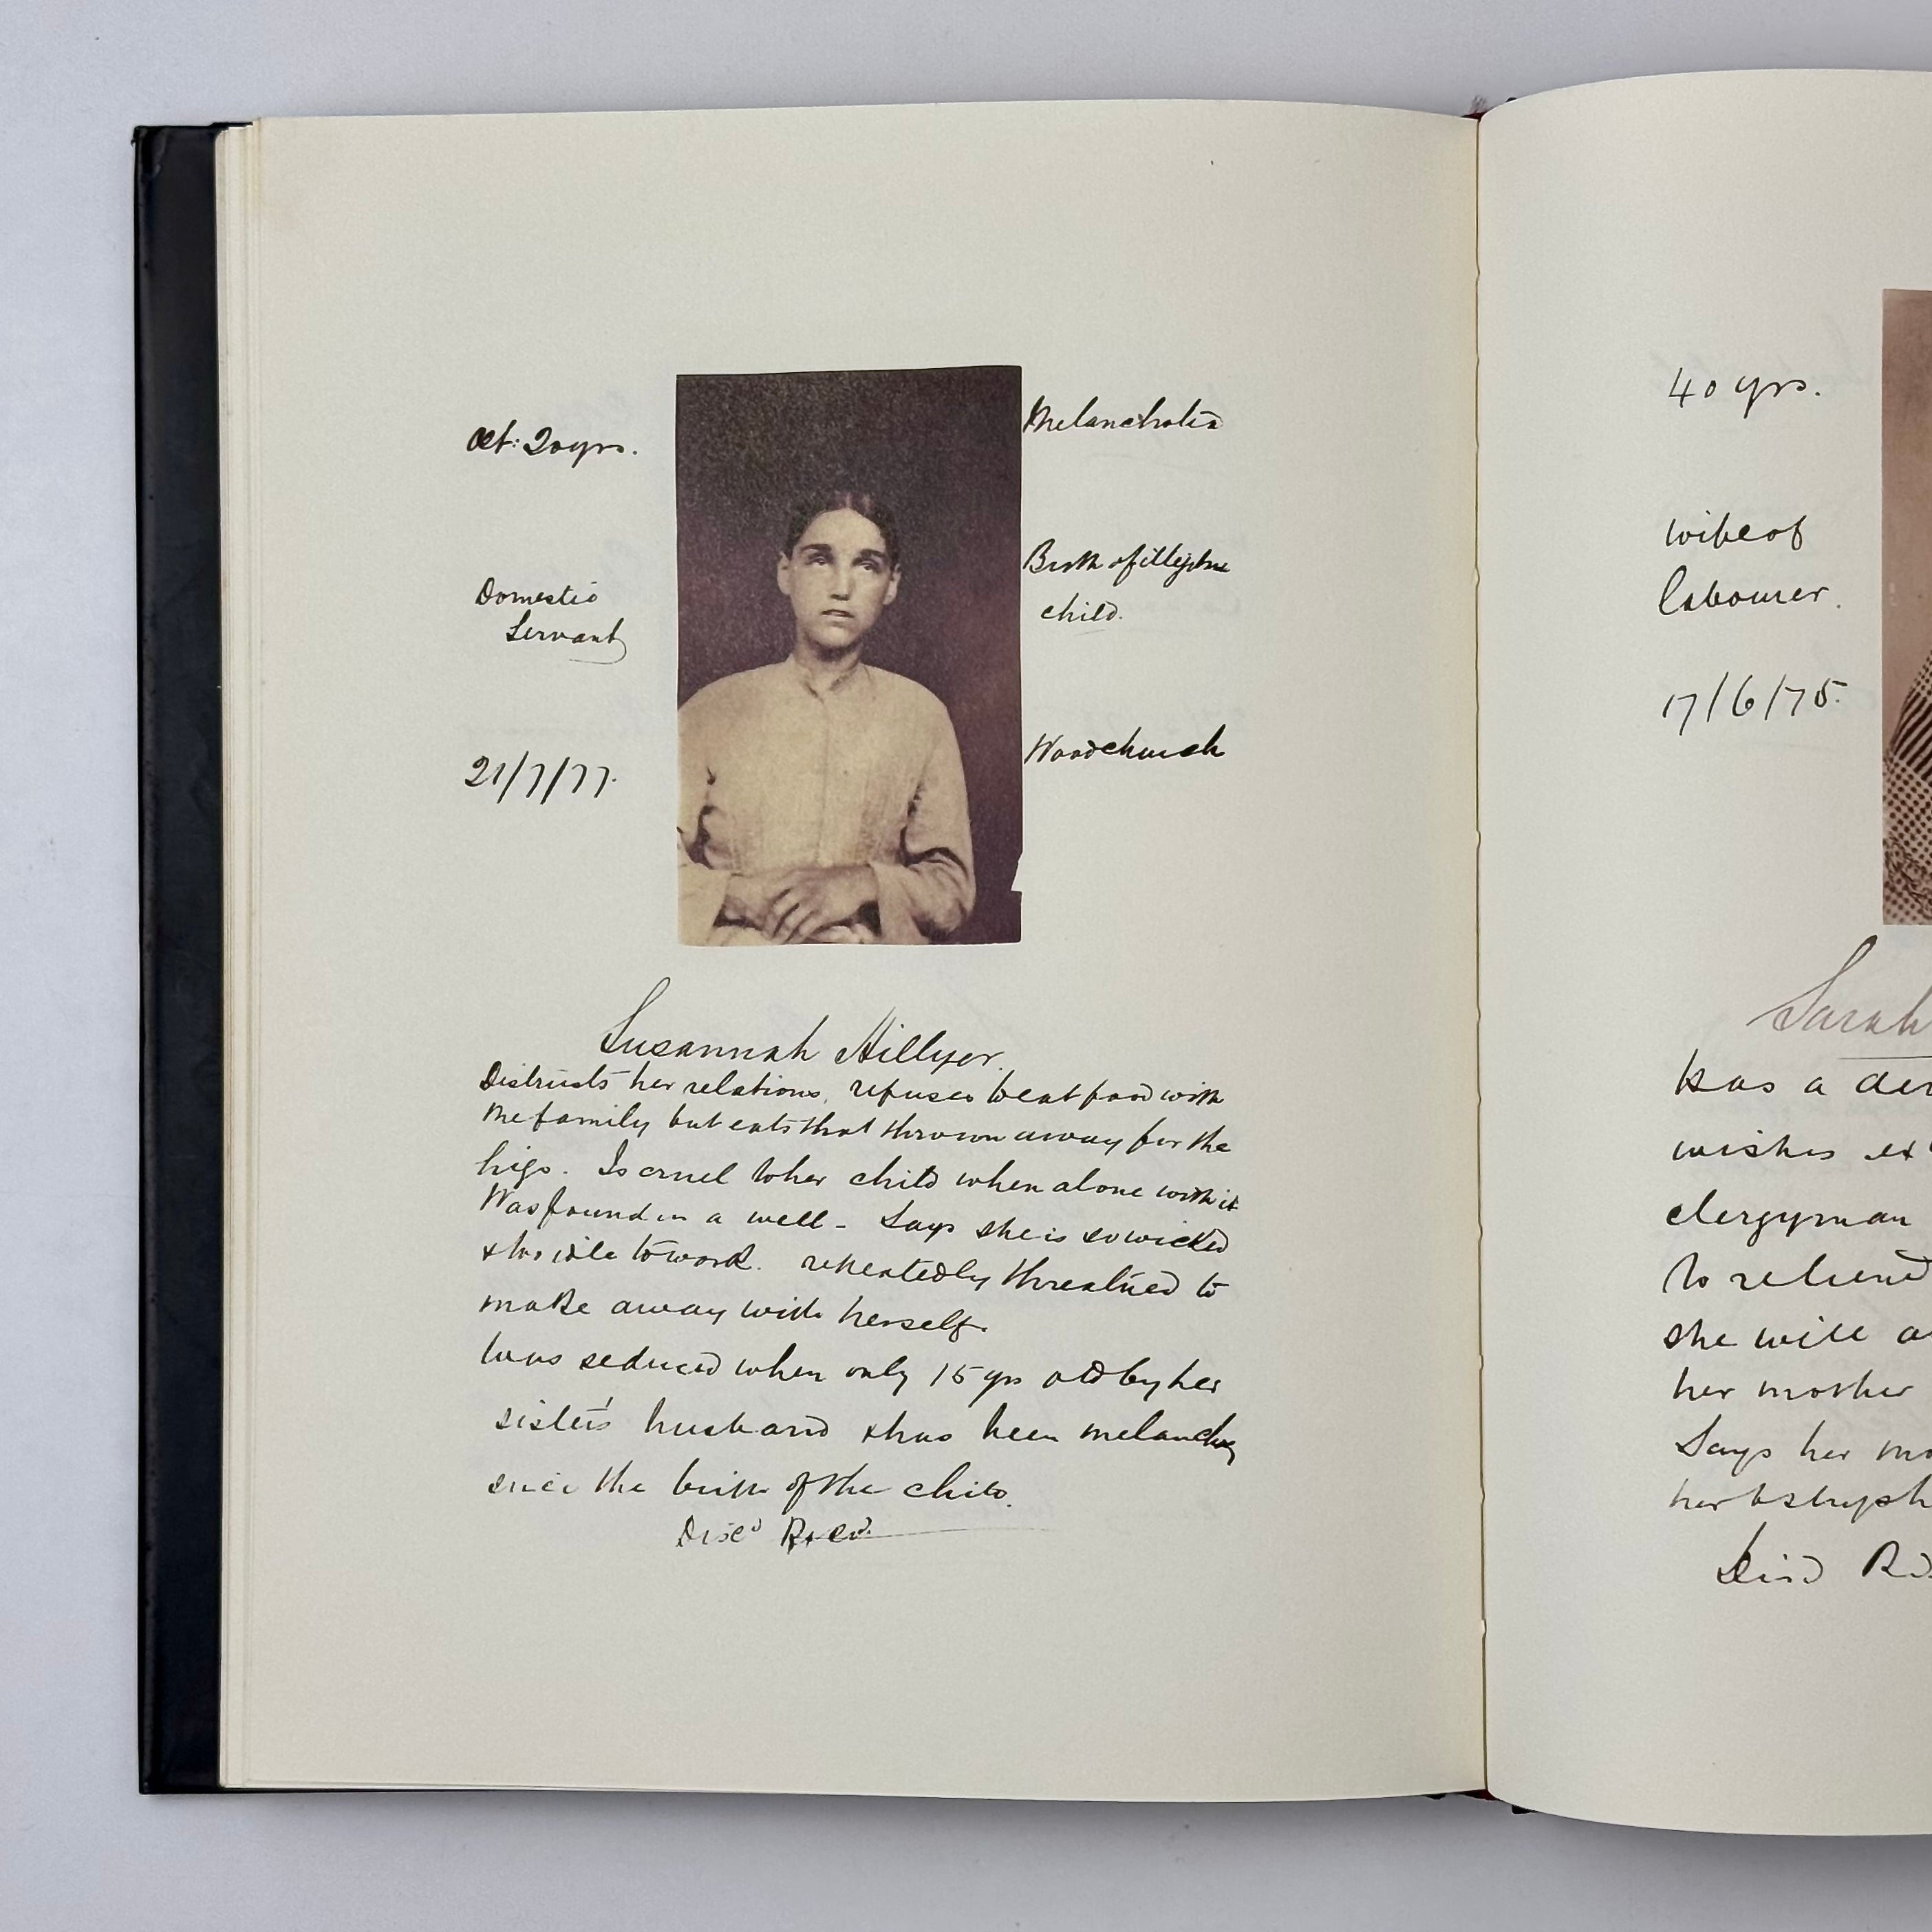 Aet: 20 yrs.
Domestic
Servant
21/7/77.
Melancholia
Birth of illegitne
child.
Woodchurch
Susannah Hillyer.
Distrusts her relations, refuses to eat food with
the family but eats that thrown away for the
pigs. Is cruel to her child when alone with it
Was found in a well - Says she is so wicked
& too idle to work. repeatedly threatned to
make away with herself.
Was seduced when only 15 yrs old by her
sister's husband & has been melancholy
since the birth of the child.
Disc'd
40 yrs.
wife of
labourer.
17/6/75.
Sarah
has a
wishes
clergyman
to
she will
her mother
Says her
her